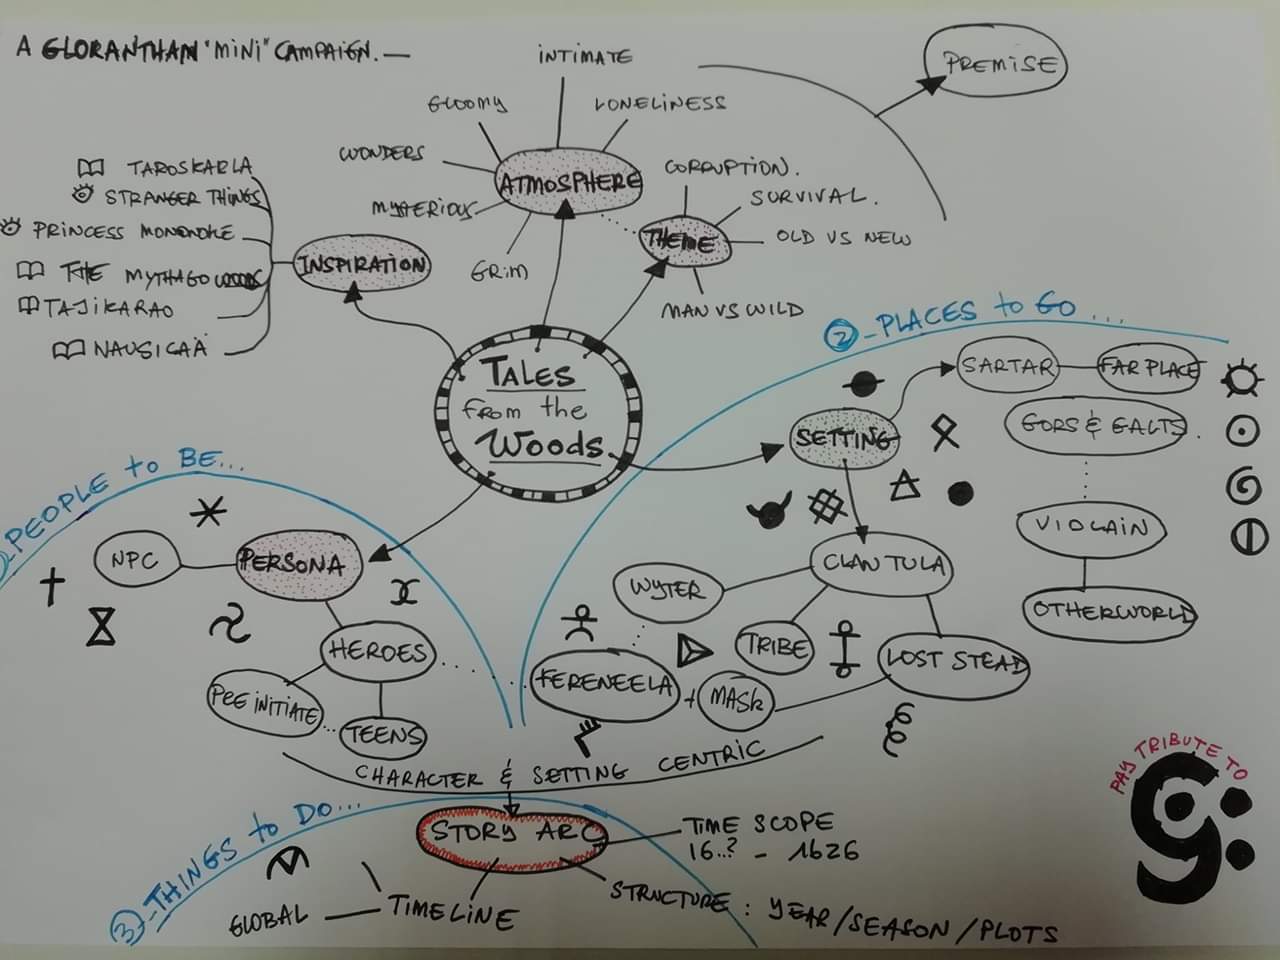 A GLORANTHAN "MINI" CAMPAIGN. —
INTIMATE
GLOOMY
LONELINESS
WONDERS
MYSTERIOUS
GRIM
ATMOSPHERE
PREMISE
TAROSKARLA
STRANGER THINGS
PRINCESS MONONOKE
THE MYTHAGO WOODS
TAJIKARAO
NAUSICAÄ
INSPIRATION
CORRUPTION.
SURVIVAL.
THEME
OLD VS NEW
MAN VS WILD
TALES
from the
WOODS.
2 - PLACES to GO ...
SETTING
SARTAR
FAR PLACE
GORS & GALTS.
VIOLAIN
OTHERWORLD
CLAN TULA
WYTER
TRIBE
LOST STEAD
FERENEELA
+
MASK
PEOPLE to BE...
NPC
PERSONA
HEROES
PRE INITIATE
TEENS
CHARACTER & SETTING CENTRIC
3 - THINGS to DO...
STORY ARC
TIME SCOPE
16..? - 1626
GLOBAL
TIMELINE
STRUCTURE : YEAR/SEASON/PLOTS
PAY TRIBUTE TO